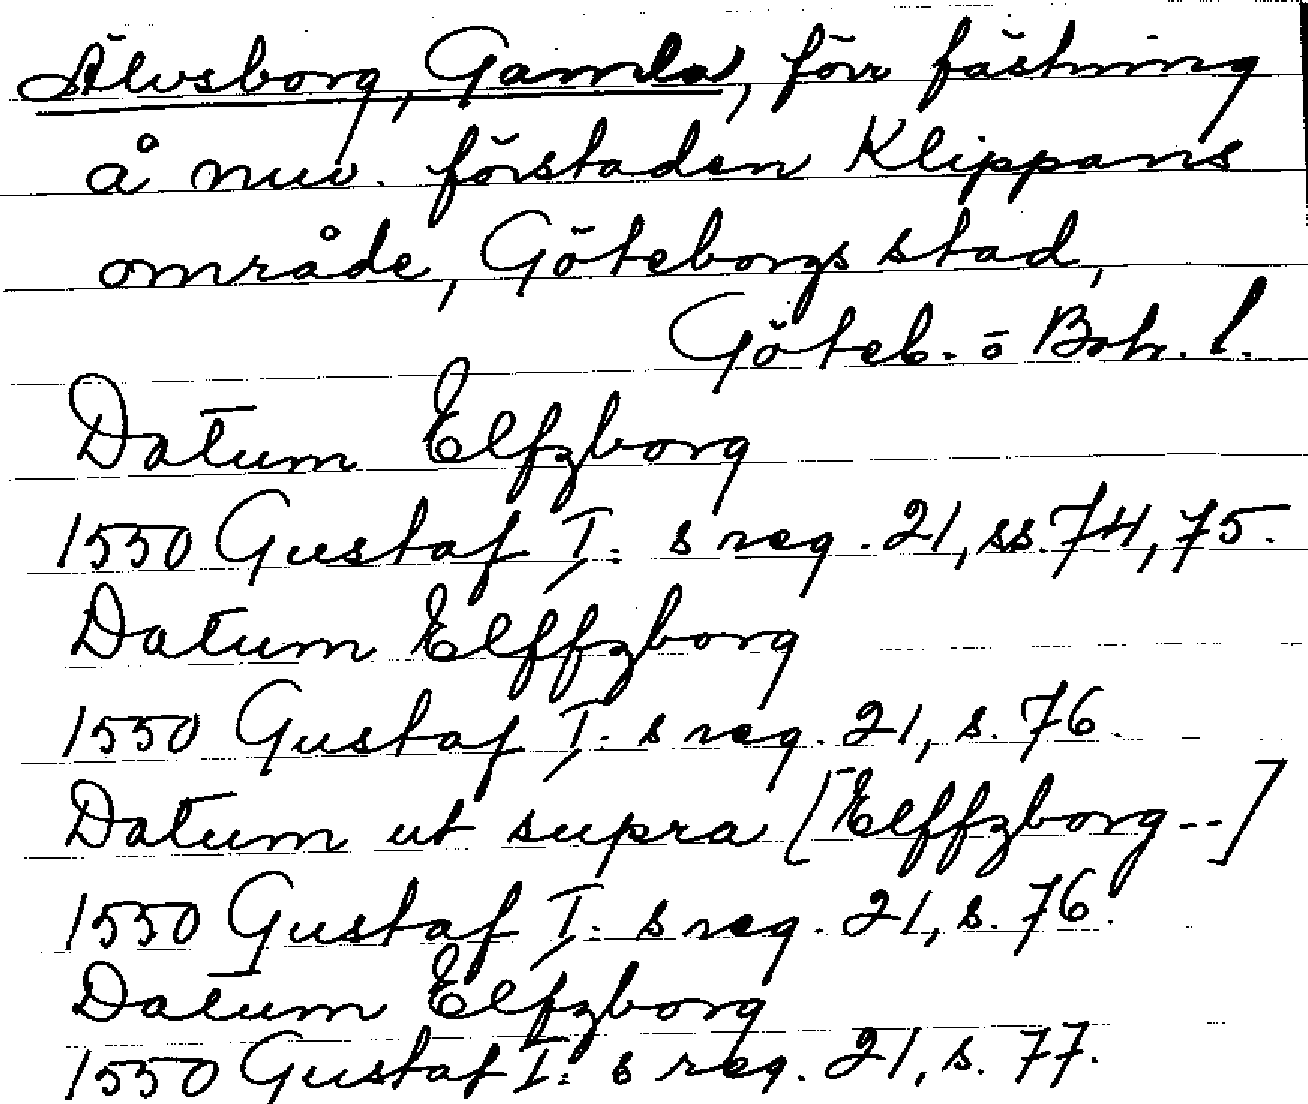 Älvsborg, Gamla, förr fästning
å nuv. förstaden Klippans
område, Göteborgs stad,
Göteb. o Boh. l.
Datum Elfzborg
1550 Gustaf I:s reg. 21, ss. 74, 75.
Datum Elffzborg
1550 Gustaf I:s reg. 21, s. 76.
Datum ut supra [Elffzborg --]
1550 Gustaf I:s reg. 21, s. 76.
Datum Elfzborg
1550 Gustaf I:s reg. 21, s. 77.